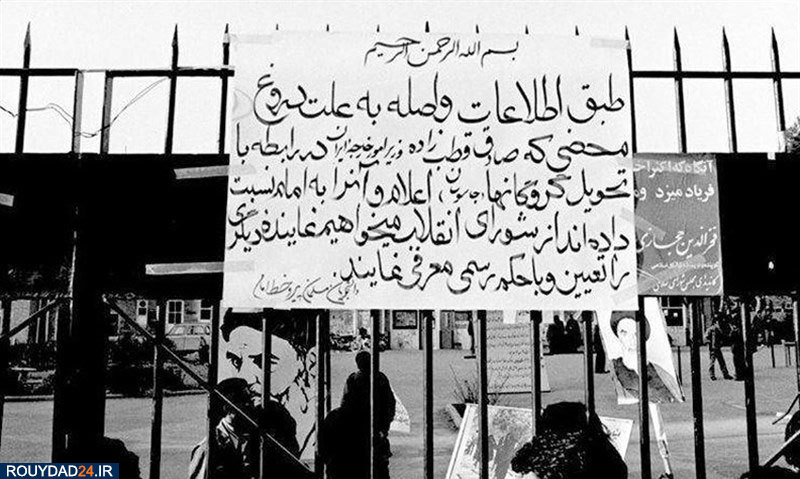 بسم الله الرحمن الرحیم
طبق اطلاعات واصله به علت دروغ
محضی که صادق قطب زاده وزیر امور خارجه ایران در رابطه با
تحویل گروگانها (جاسوسان) اعلام و آنرا به امام نسبت
داده اند از شورای انقلاب میخواهیم نماینده دیگری
را تعیین و با حکم رسمی معرفی نمایند
دانشجویان مسلمان پیرو خط امام
فریاد میزد
فخرالدین حجازی
ROUYDAD24.IR